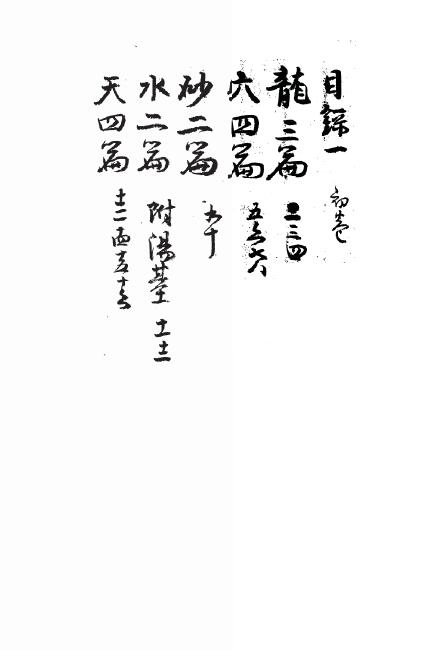 目錄一 初卷
龍三篇 二三四
穴四篇 五六七八
砂二篇 九十
水二篇 附陽基 十一 十二
天四篇 十三 十四 十五 十六